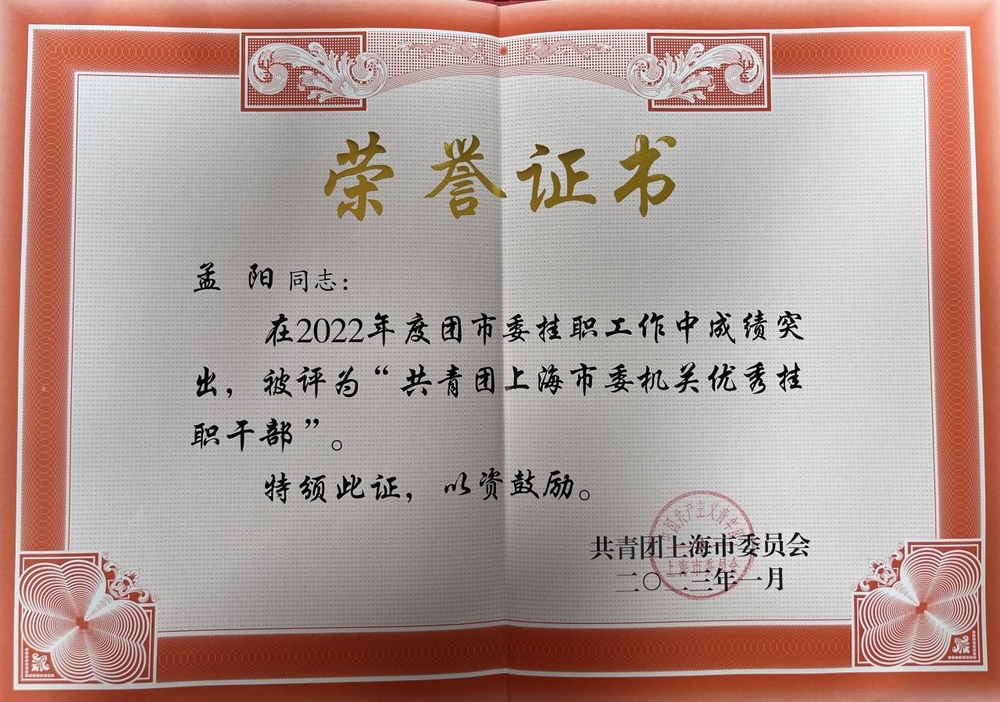 荣誉证书
孟 阳 同志：
在2022年度团市委挂职工作中成绩突
出，被评为“共青团上海市委机关优秀挂
职干部”。
特颁此证，以资鼓励。
共青团上海市委员会
二〇二三年一月